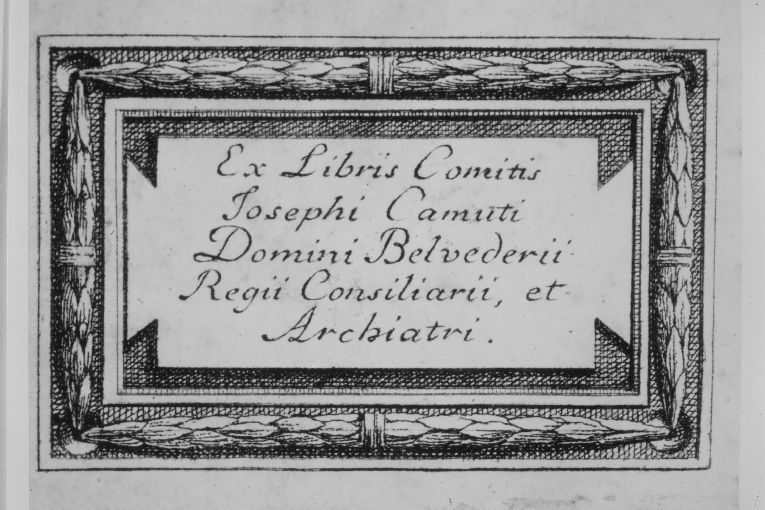 Ex Libris Comitis
Iosephi Camuti
Domini Belvederii
Regii Consiliarii, et
Archiatri.